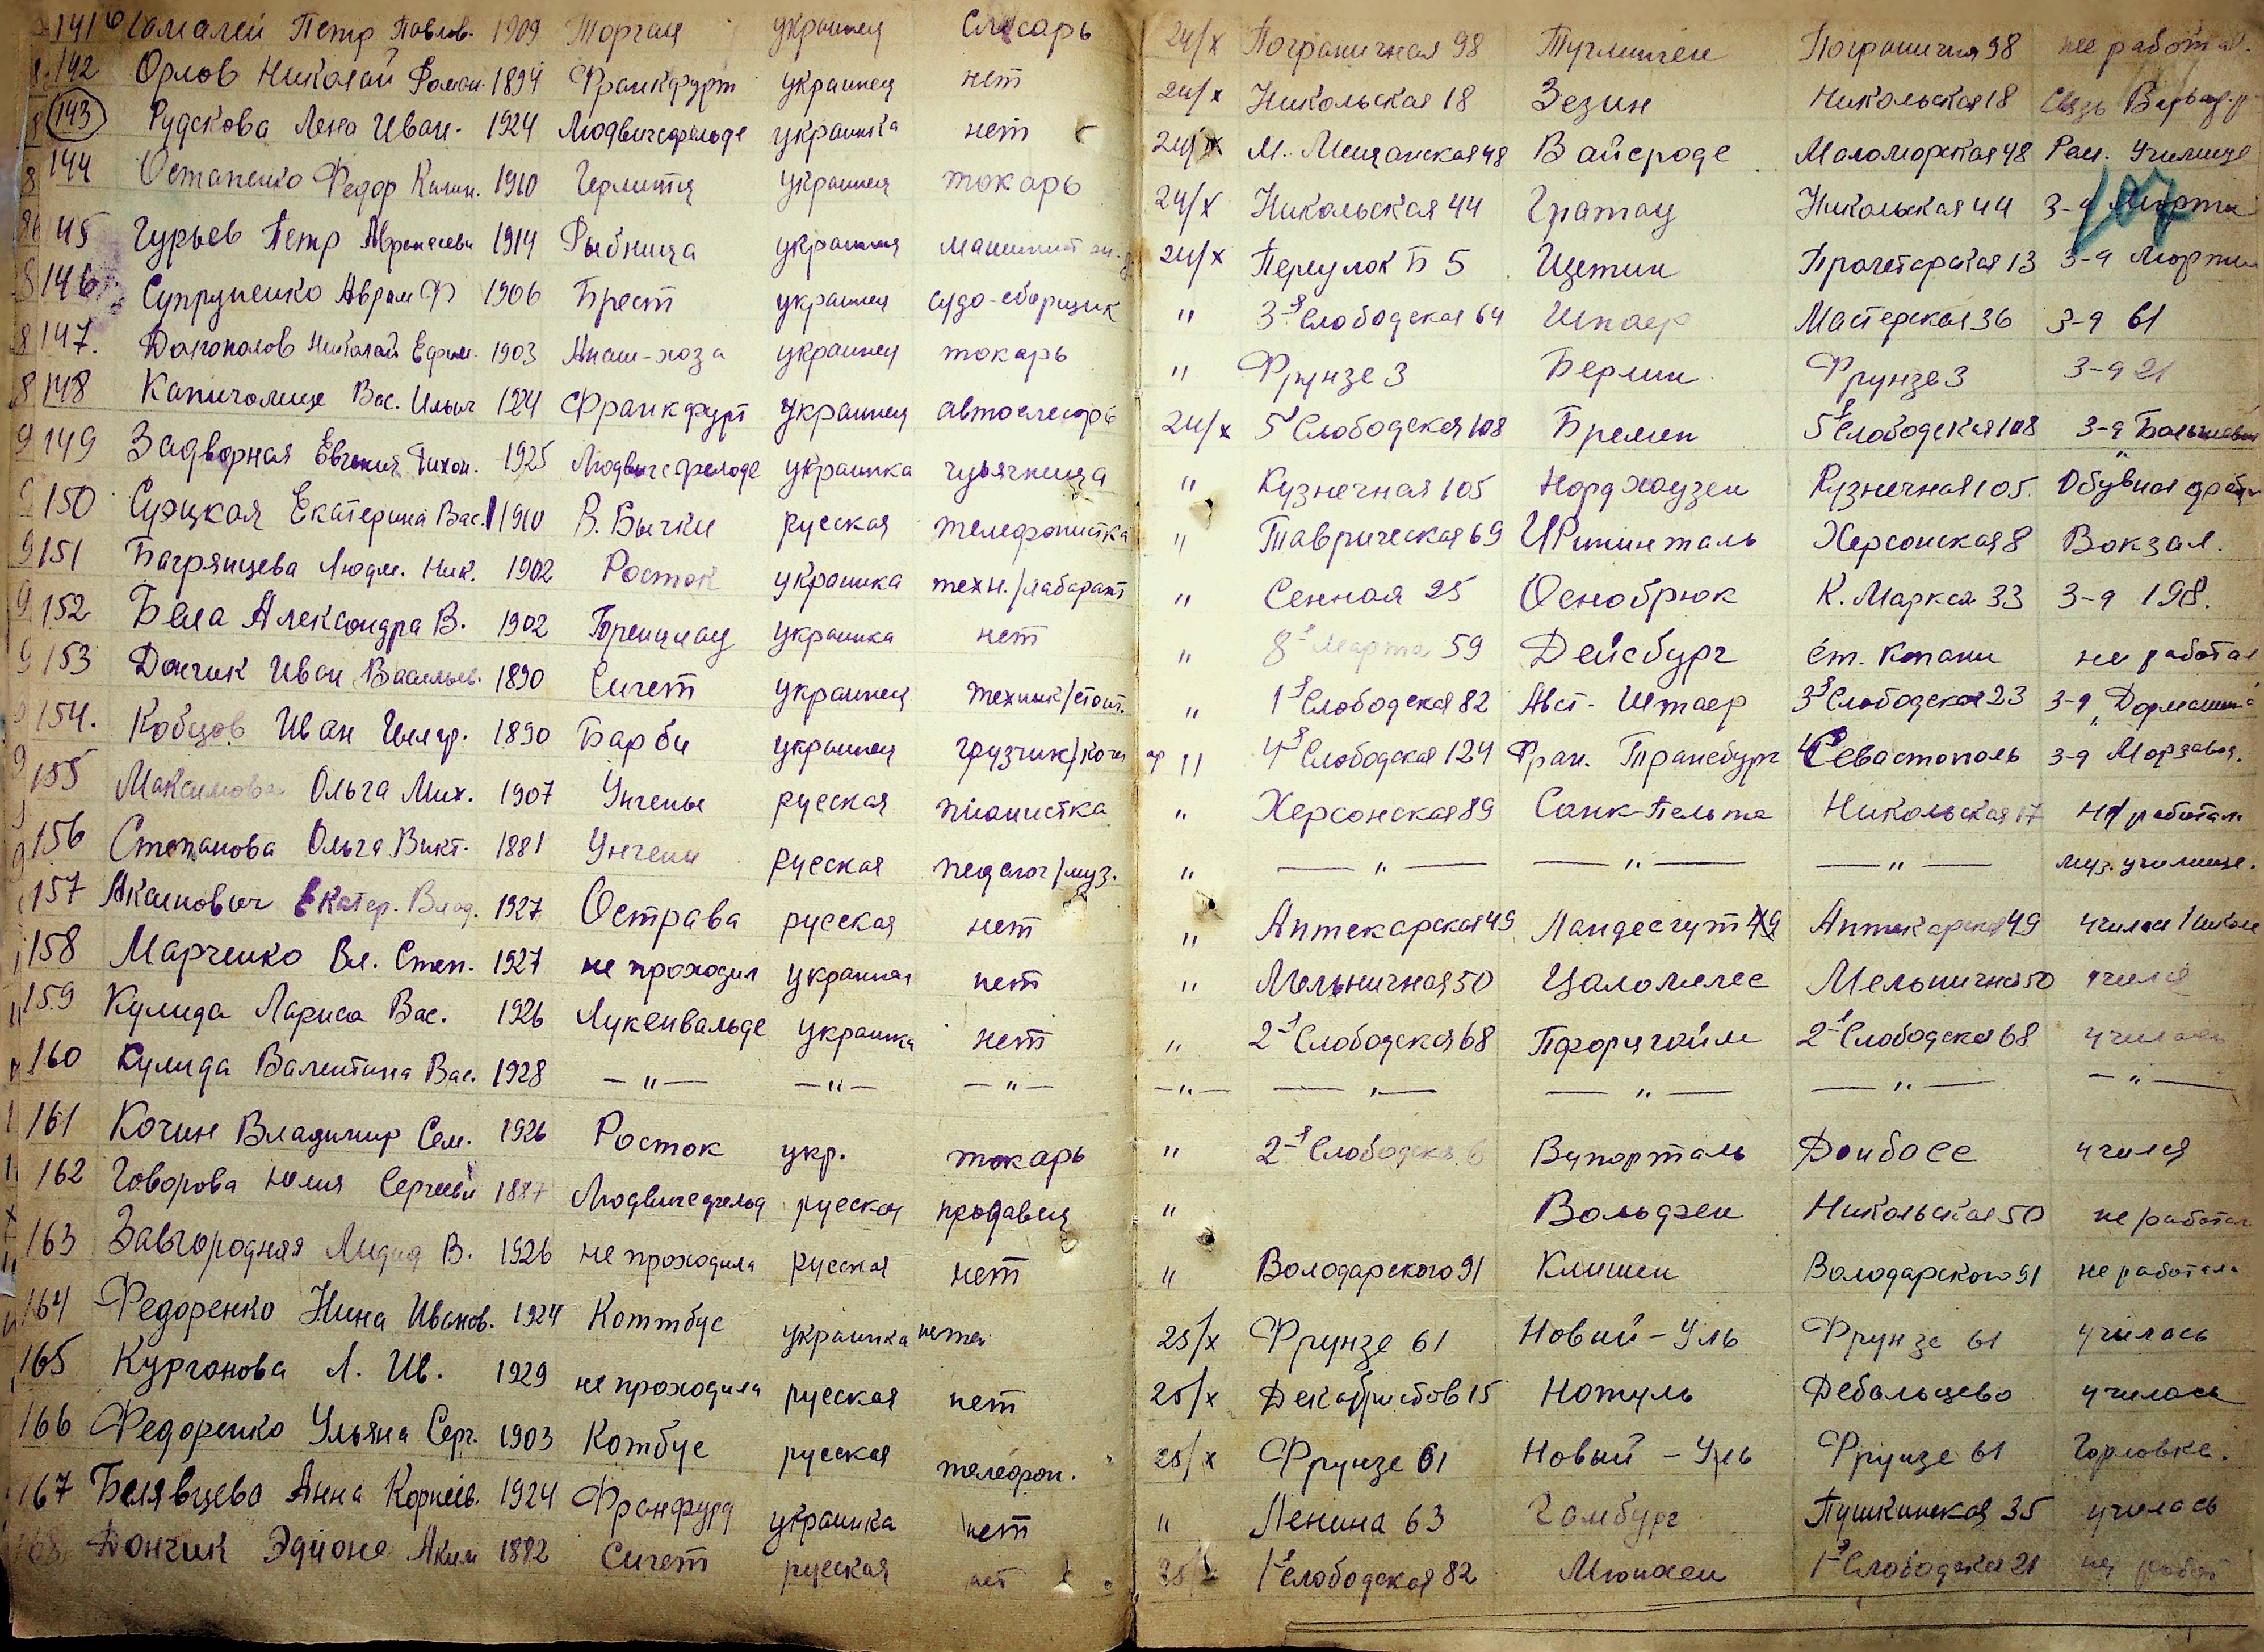 141 Петр Павлов. 1909 Торгау украинец слесарь 24/X Пограничная 98 Пограничная 98 не работал.
142 Орлов Николай 1894 Франкфурт украинец нет 24/X Никольская 18 Зезин Никольская 18 Связь
143 Рудскова Лена Иван. 1924 Людвигсфельде украинка нет 24/X М. Мещанская 48 Вайсроде Маломорская 48 Рем. Училище
144 Остапенко Федор Калин. 1910 Герлитц украинец токарь 24/X Никольская 44 Гратау Никольская 44 3-д Марти
107
145 Гурьев Петр 1914 Рыбница украинец машинист 24/X Переулок Б 5 Щетин Пролетарская 13 3-д Марти
146 Супруненко Аврам Ф 1906 Брест украинец судо-сборщик " 3-я Слободская 64 Шпаер Мастерская 36 3-д 61
147. Долгополов Николай Ефим. 1903 украинец токарь " Фрунзе 3 Берлин Фрунзе 3 3-д 21
148 Капичолище Вас. Ильич 124 Франкфурт украинец автослесарь 24/X 5я Слободская 108 Бремен 5я Слободская 108 3-д
149 Задворная Евгения Тихон. 1925 Людвигсфелоде украинка " Кузнечная 105 Нордхаузен Кузнечная 105 Обувная фабр
150 Сущкая Екатерина Вас. 1910 В. Бычки русская телефонистка " Таврическая 69 Херсонская 8 Вокзал.
151 Багрянцева Людм. Ник. 1902 Росток украинка техн./лаборант " Сенная 25 Оснобрюк К. Маркса 33 3-д 198.
152 Бела Александра В. 1902 Бренцлау украинка нет " 8-е Марта 59 Дейсбург ст. Копани не работал
153 Дончик Иван Васильев. 1890 Сигет украинец техник/строит. " 1-я Слободская 82 Авст. Штаер 3я Слободская 23 3-д "Дормашина"
154. Кобцов Иван Илляр. 1890 Барби украинец грузчик/коч " 4-я Слободская 124 Фран. Трансбург Севастополь 3-д Морзавод.
155 Максимова Ольга Мих. 1907 Унгены русская пианистка " Херсонская 89 Санк-Пельте Никольская 17 не работал
156 Степанова Ольга Викт. 1881 Унгены русская педагог/муз. " — " — — " — — " — муз. училище.
157 Акаинович Екатер. Влад. 1927 Острава русская нет " Аптекарская 49 Ландесгут Аптекарская 49 училась
158 Марченко Вл. Степ. 1927 не проходил украинец нет " Мельничная 50 Мельнична 50 училс
159 Кулида Лариса Вас. 1926 Лукенвальде украинка нет " 2-я Слободская 68 Пфорцгайм 2-я Слободска 68 училась
160 Кулида Валентина Вас. 1928 — " — — " — — " — — " — — " — — " — — " — — " —
161 Кочин Владимир Сем. 1926 Росток укр. токарь " 2-я Слободска 6 Вупорталь Донбасс учился
162 Говорова Юлия Сергееви 1887 Людвигсфельд русская продавец " Вольдзен Никольская 50 не работал
163 Завгородняя Лидия В. 1926 не проходила русская нет " Володарского 91 Клишеи Володарского 91 не работала
164 Федоренко Нина Иванов. 1924 Коттбус украинка 25/X Фрунзе 61 Новый-Уль Фрунзе 61 училась
165 Курганова Л. Ив. 1929 не проходила русская нет 25/X Декабристов 15 Нотуль Дебальцево училась
166 Федоренко Ульяна Серг. 1903 Котбус русская телефон. 25/X Фрунзе 61 Новый - Уль Фрунзе 61 Горловке.
167 Белявцева Анна Корнеев. 1924 Франфурд украинка нет " Ленина 63 Гамбург Пушкинская 35 училась
168 Дончик Аким 1882 Сигет русская нет 25/X 1-я Слободская 82 Мюнхен 1-я Слободская 21 не работ